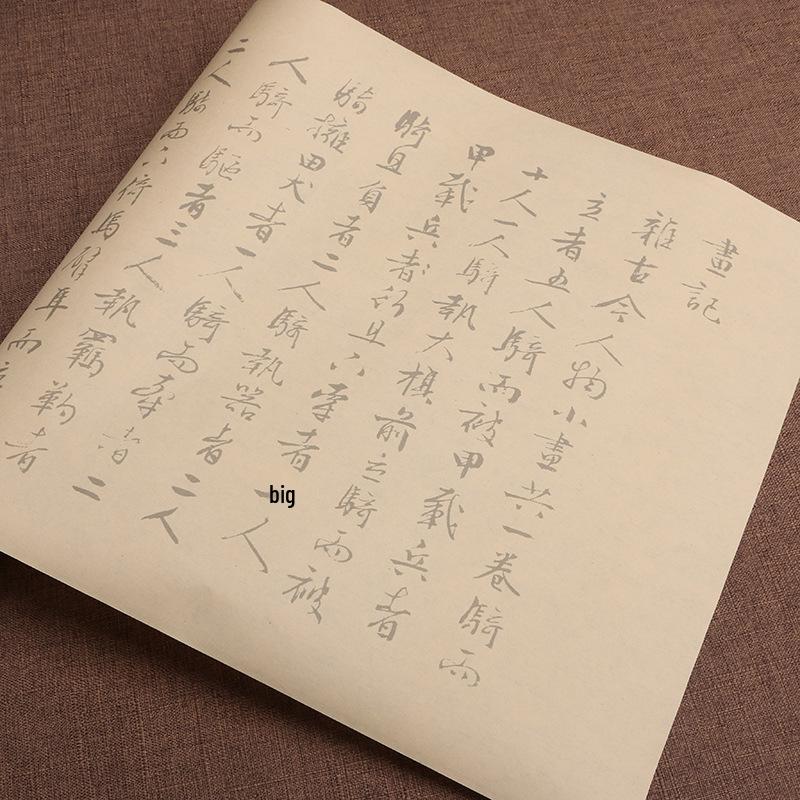 畫記
雜古今人物小畫共一卷騎而
立者五人騎而被甲載兵者
十人一人騎執大旗前立騎而被
甲載兵者行且下牽者一人
騎且負者二人騎執器者二人
騎擁田犬者一人騎而牽者二
人騎而驅者三人執羈靮者
二人騎而下倚馬臂隼而立
big